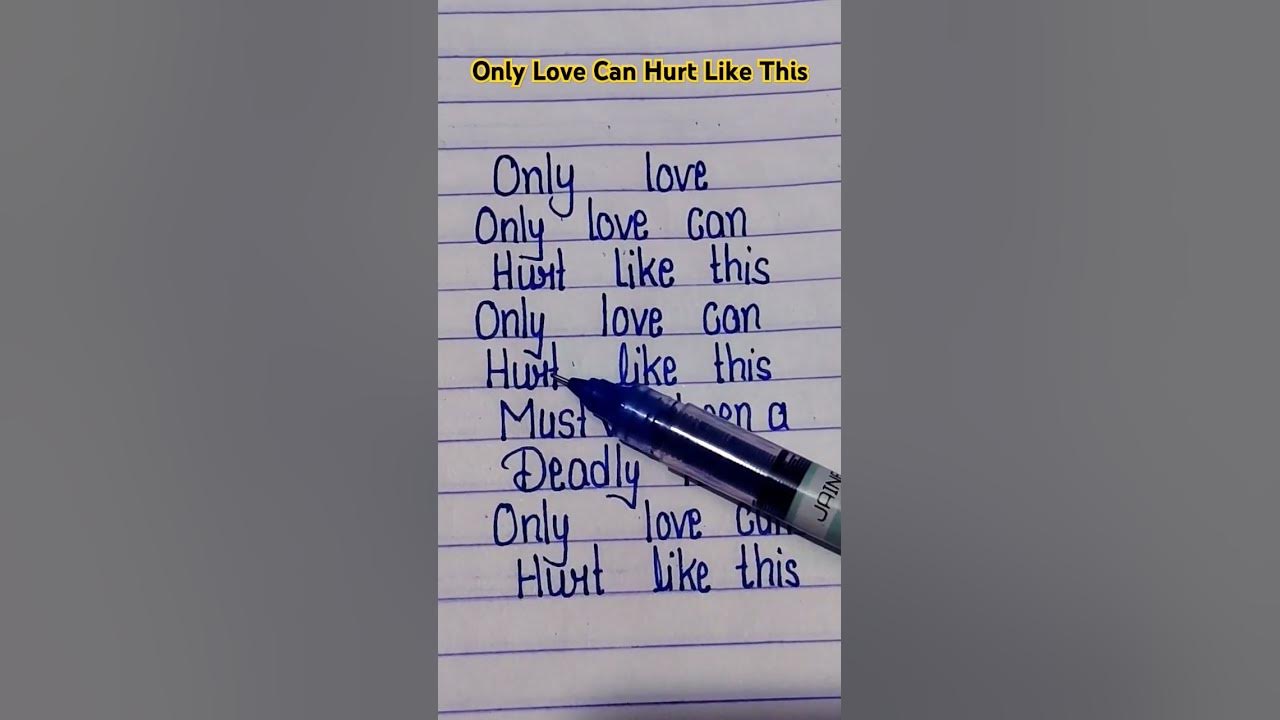 Only Love Can Hurt Like This
Only love
Only love can
Hurt like this
Only love can
Hurt like this
Must a
Deadly
Only love
Hurt like this
JAINE